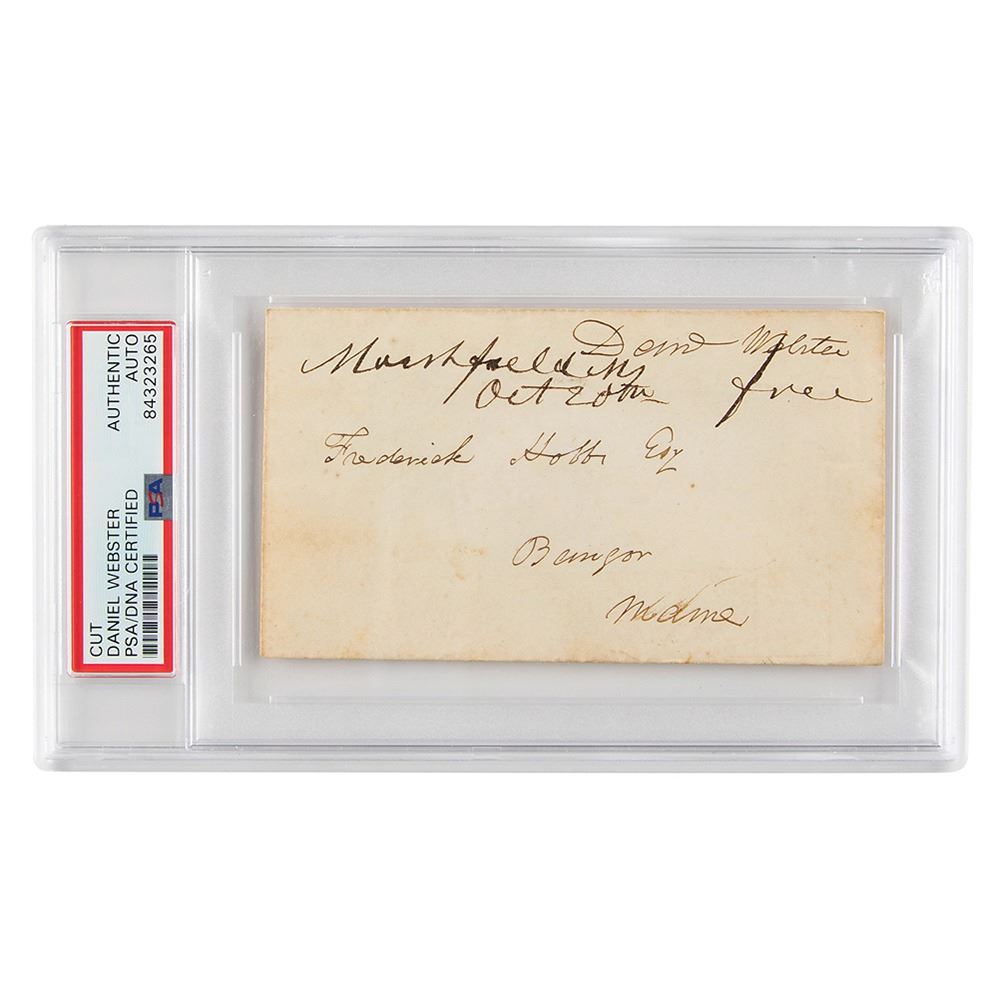 AUTHENTIC
AUTO
84323265
PSA
CUT
DANIEL WEBSTER
PSA/DNA CERTIFIED
Danl Webster
Marshfield Ms
free
Oct 20th
Frederick Hobbs Esq
Bangor
Maine